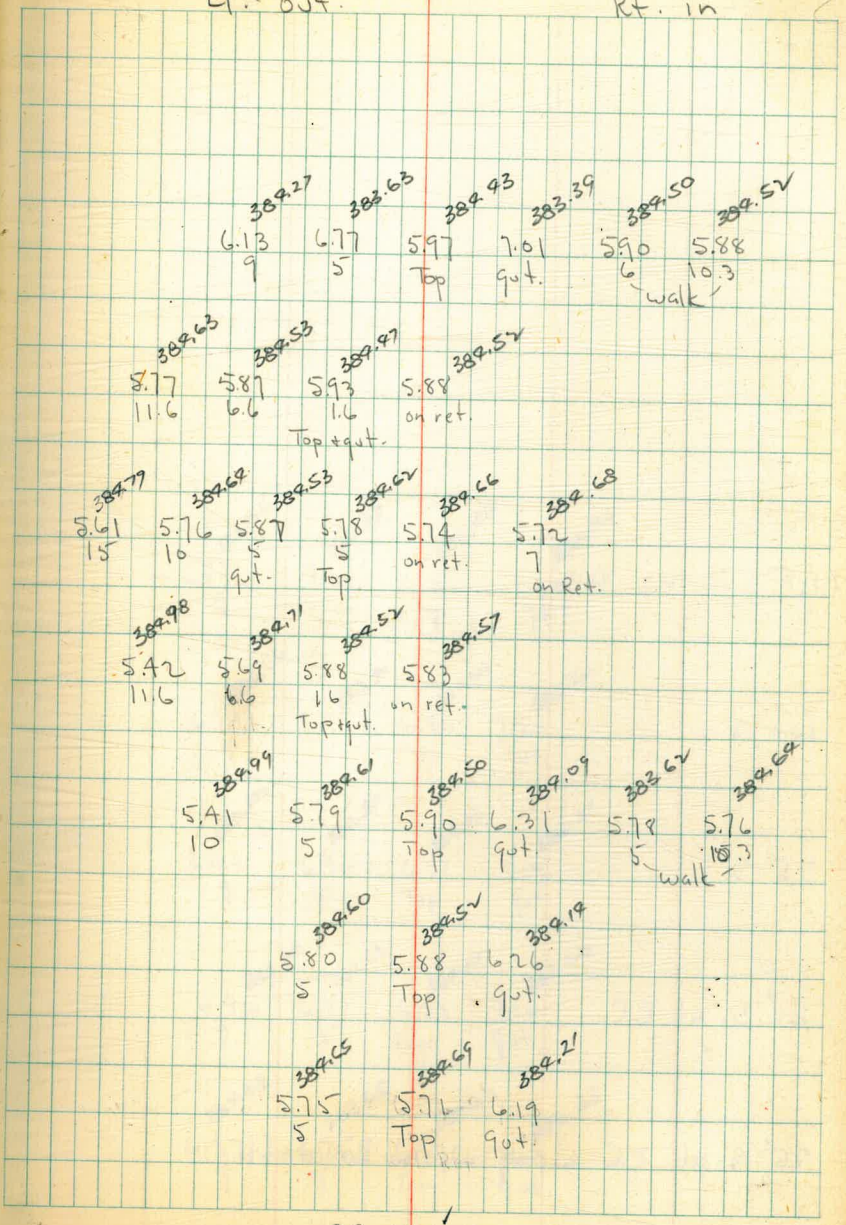 Lt. out. Rt. in
384.27 383.63 384.43 383.39 384.50 384.52
6.13 6.77 5.97 7.01 5.90 5.88
9 5 Top gut. 6 10.3
walk
384.63 384.53 384.47 384.52
5.77 5.87 5.93 5.88
11.6 6.6 1.6 on ret.
Top + gut.
384.79 384.64 384.53 384.62 384.66 384.68
5.61 5.76 5.87 5.78 5.74 5.72
15 10 5 5 on ret. 7
gut. Top on Ret.
384.98 384.71 384.52 384.57
5.42 5.69 5.88 5.83
11.6 6.6 1.6 on ret.
Top + gut.
384.99 384.61 384.50 384.09 383.62 384.64
5.41 5.79 5.90 6.31 5.78 5.76
10 5 Top gut. 5 10.3
walk
384.60 384.52 384.14
5.80 5.88 6.26
5 Top gut.
384.65 384.69 384.21
5.75 5.71 6.19
5 Top gut.